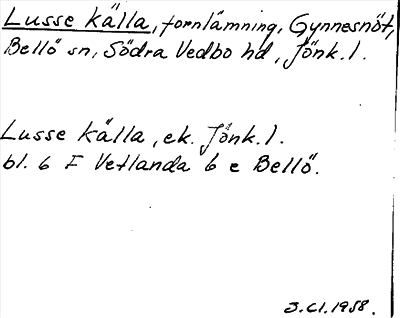 Lusse källa, fornlämning, Gynnesnöt,
Bellö sn, Södra Vedbo hd, Jönk. l.
Lusse källa, ek. Jönk. l.
bl. 6 F Vetlanda 6 e Bellö.
1958.